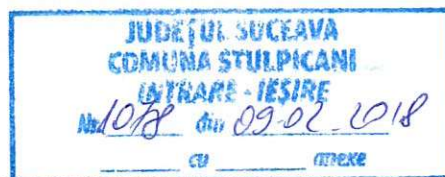 JUDEȚUL SUCEAVA
COMUNA STULPICANI
INTRARE - IEȘIRE
No 1078 din 09-02-2018
cu anexe